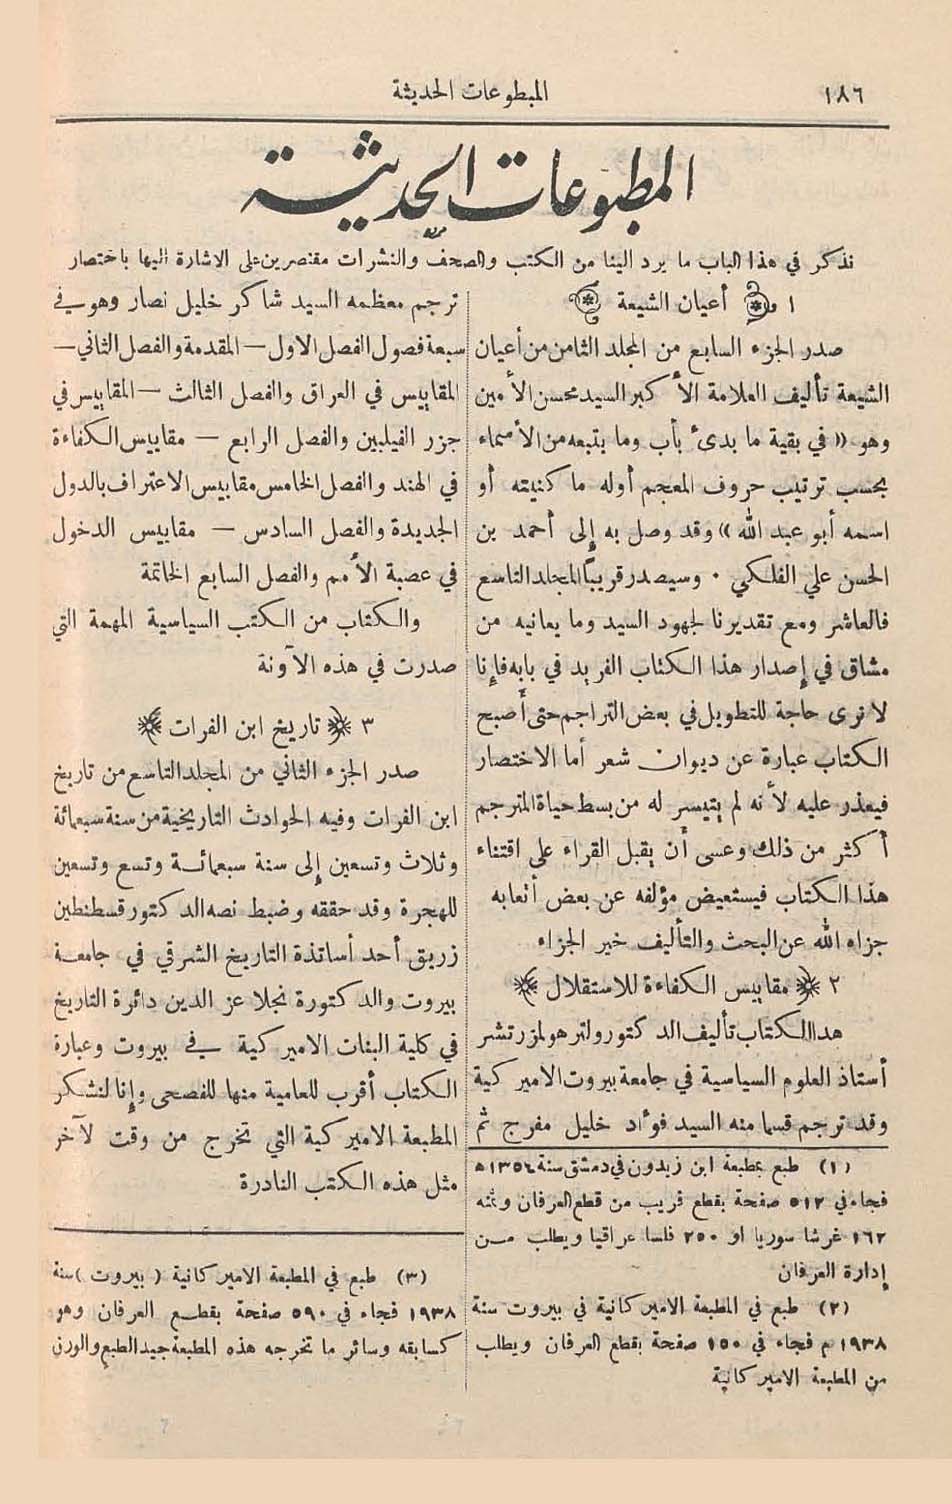 ١٨٦
المطبوعات الحديثة
المطبوعات الحديثة
نذكر في هذا الباب ما يرد الينا من الكتب والصحف والنشرات مقتصرين على الاشارة اليها باختصار
١ و أعيان الشيعة
صدر الجزء السابع من المجلد الثامن من أعيان
الشيعة تأليف العلامة الأكبر السيد محسن الأمين
وهو « في بقية ما بدئ بأب وما يتبعه من الأسماء
بحسب ترتيب حروف المعجم أوله ما كنيته أو
اسمه أبو عبد الله » وقد وصل به إلى أحمد بن
الحسن علي الفلكي ٠ وسيصدر قريباً المجلد التاسع
فالعاشر ومع تقديرنا لجهود السيد وما يعانيه من
مشاق في إصدار هذا الكتاب الفريد في بابه فإنا
لا نرى حاجة للتطويل في بعض التراجم حتى أصبح
الكتاب عبارة عن ديوان شعر أما الاختصار
فيعذر عليه لأنه لم يتيسر له من بسط حياة المترجم
أكثر من ذلك وعسى أن يقبل القراء على اقتناء
هذا الكتاب فيستعيض مؤلفه عن بعض أتعابه
جزاه الله عن البحث والتأليف خير الجزاء
٢ ﴿ مقاييس الكفاءة للاستقلال ﴾
هدا الكتاب تأليف الدكتور ولتر هولمز رتشر
أستاذ العلوم السياسية في جامعة بيروت الاميركية
وقد ترجم قسما منه السيد فؤاد خليل مفرج ثم
(١) طبع بمطبعة ابن زيدون في دمشق سنة ١٣٥٤ه
فجاء في ٥١٢ صفحة بقطع قريب من قطع العرفان وثمنه
١٦٢ غرشا سوريا او ٢٥٠ فلسا عراقيا ويطلب من
إدارة العرفان
(٢) طبع في المطبعة الاميركانية في بيروت سنة
١٩٣٨ م فجاء في ١٥٠ صفحة بقطع العرفان ويطلب
من المطبعة الاميركانية
ترجم معظمه السيد شاكر خليل نصار وهو في
سبعة فصول الفصل الاول – المقدمة والفصل الثاني –
المقاييس في العراق والفصل الثالث – المقاييس في
جزر الفيلبين والفصل الرابع – مقاييس الكفاءة
في الهند والفصل الخامس مقاييس الاعتراف بالدول
الجديدة والفصل السادس – مقاييس الدخول
في عصبة الأمم والفصل السابع الخاتمة
والكتاب من الكتب السياسية المهمة التي
صدرت في هذه الآونة
٣ ﴿ تاريخ ابن الفرات ﴾
صدر الجزء الثاني من المجلد التاسع من تاريخ
ابن الفرات وفيه الحوادث التاريخية من سنة سبعمائة
وثلاث وتسعين إلى سنة سبعمائة وتسع وتسعين
للهجرة وقد حققه وضبط نصه الدكتور قسطنطين
زريق أحد أساتذة التاريخ الشرقي في جامعة
بيروت والدكتورة نجلا عز الدين دائرة التاريخ
في كلية البنات الاميركية في بيروت وعبارة
الكتاب أقرب للعامية منها للفصحى وإنا لنشكر
المطبعة الاميركية التي تخرج من وقت لآخر
مثل هذه الكتب النادرة
(٣) طبع في المطبعة الاميركانية ( بيروت ) سنة
١٩٣٨ فجاء في ٥٩٠ صفحة بقطع العرفان وهو
كسابقه وسائر ما تخرجه هذه المطبعة جيد الطبع والورق